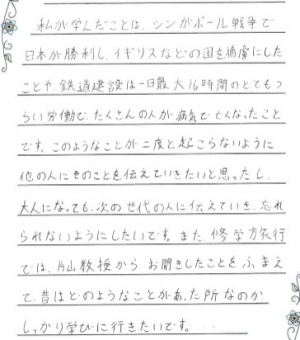 私が学んだことは、シンガポール戦争で
日本が勝利し、イギリスなどの国を捕虜にした
ことや、鉄道建設は一日最大16時間のとてもつ
らい労働で、たくさんの人が病気で亡くなったこと
です。このようなことが二度と起こらないように
他の人にそのことを伝えていきたいと思ったし、
大人になっても、次の世代の人に伝えていき、忘れ
られないようにしたいです。また、修学方旅行
では、片山教授からお聞きしたことをふまえ
て、昔はどのようなことがあった所なのか
しっかり学びに行きたいです。